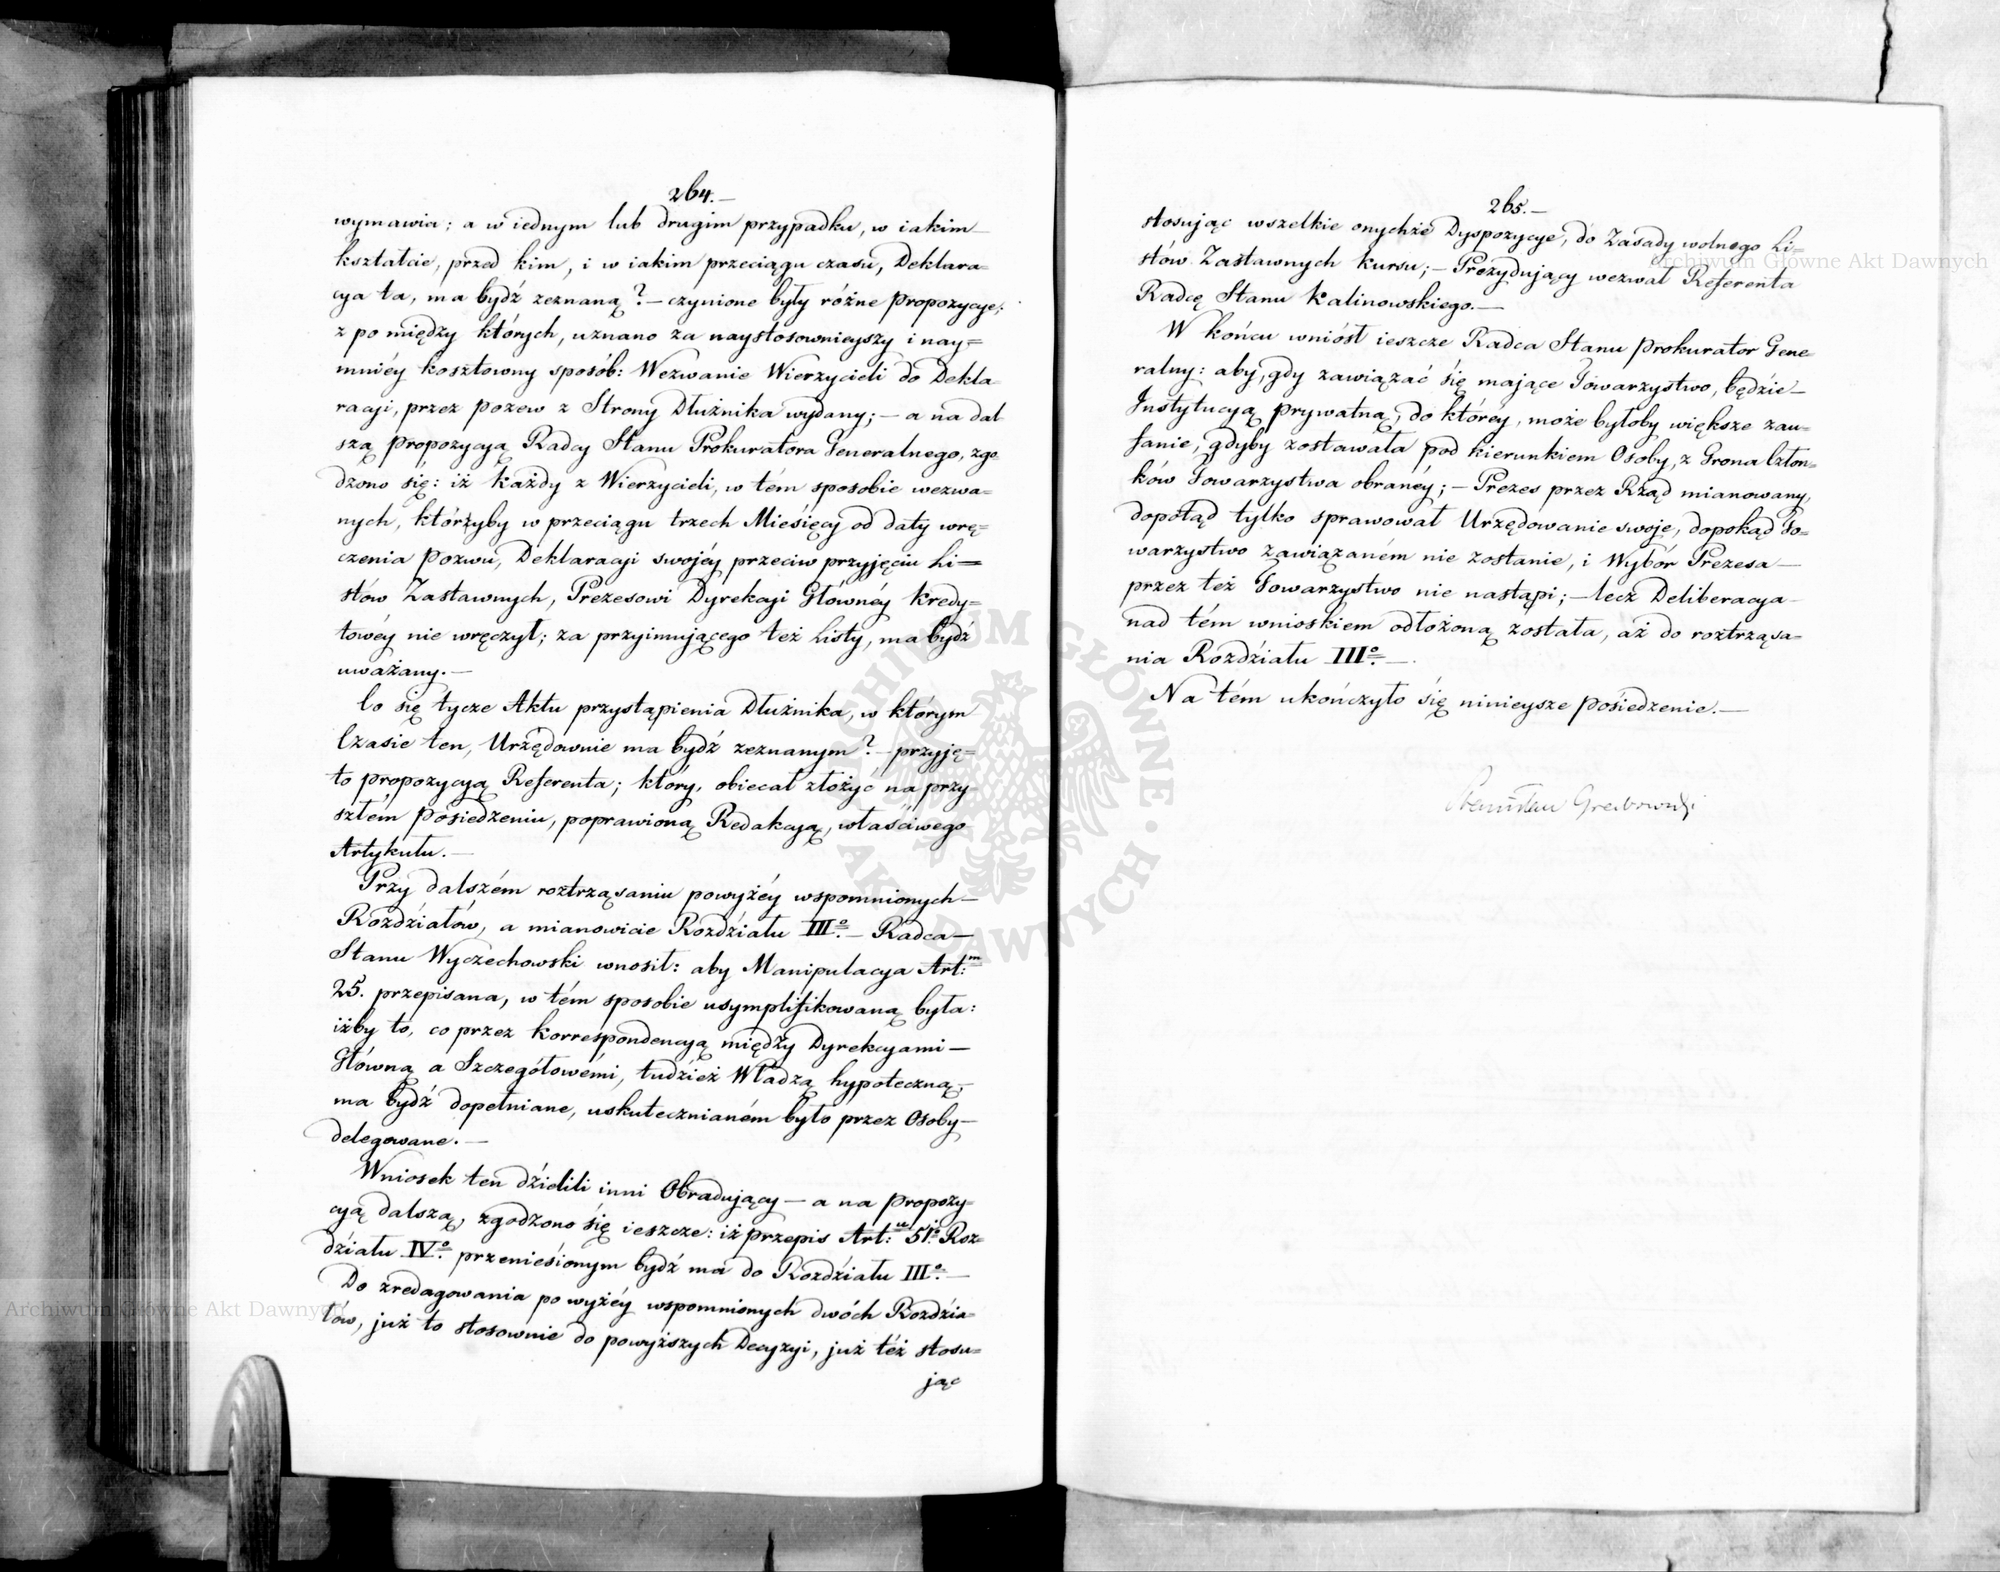 264.—
wymawia; a w iednym lub drugim przypadku, w iakim
kształcie, przed kim, i w iakim przeciągu czasu, Deklara=
cya ta, ma bydź zeznaną?— czynione były różne propozycye;
z pomiędzy których, uznano za naystosownieyszy i nay=
mniéy kosztowny sposób: Wezwanie Wierzycieli do Dekla=
racji, przez pozew z Strony Dłużnika wydany;— a na dal
szą propozycyą Radcy Stanu Prokuratora Generalnego, zgo=
dzono się: iż każdy z Wierzycieli, w tém sposobie wezwa=
nych, któryżby w przeciągu trzech Miesięcy od daty wrę=
czenia Pozwu, Deklaracji swojéy przeciw przyjęciu Li=
stów Zastawnych, Prezesowi Dyrekcyi Głownéy Kredy=
towéy nie wręczył; za przyimującego też Listy, ma bydź
uważany.—
Co się tycze Aktu przystąpienia Dłużnika, w którym
Czasie ten, Urzędownie ma bydź zeznanym?— przyję=
to propozycyą Referenta; który, obiecał złożyć na przy
szłém posiedzeniu, poprawioną Redakcyą, właściwego
Artykułu.—
Przy dalszém roztrząsaniu powyżéy wspomnionych—
Rozdziałów, a mianowicie Rozdziału III°.— Radca—
Stanu Wyczechowski wnosił: aby Manipulacya Art:m
25. przepisana, w tém sposobie usymplifikowaną była:
iżby to, co przez korrespondencyą między Dyrekcyami—
Główną a Szczegółowémi, tudzież Władzą hypoteczną,—
ma bydź dopełniane, uskutecznianém było przez Osoby—
delegowane.—
Wniosek ten dzielili inni Obradujący— a na propozy=
cyą dalszą, zgodzono się ieszcze: iż przepis Art:u 51° Roz=
działu IV°. przeniesionym bydź ma do Rozdziału III°.—
Do zredagowania powyżéy wspomnionych dwóch Rozdzia=
łów, już to stosownie do powyższych Decyzyi, już też stosu=
jąc
265.—
stosując wszelkie onychże Dyspozycye, do Zasady wolnego Li=
stów Zastawnych kursu;— Prezydujący wezwał Referenta
Radcę Stanu Kalinowskiego.—
W końcu wniósł ieszcze Radca Stanu Prokurator Gene=
ralny: aby, gdy zawiązać się mające Towarzystwo, będzie—
Instytucyą prywatną, do któréy, może byłoby większe zau=
fanie, gdyby zostawała pod kierunkiem Osoby, z Grona Człon=
ków Towarzystwa obranéy;— Prezes przez Rząd mianowany,
dopotąd tylko sprawował Urzędowanie swoje, dopokąd To=
warzystwo zawiązaném nie zostanie, i Wybór Prezesa—
przez też Towarzystwo nie nastąpi;— lecz Deliberacya—
nad tém wnioskiem odłożoną została, aż do roztrząsa=
nia Rozdziału III°.—
Na tém ukończyło się ninieysze posiedzenie.—
Stanisław Grabowski
Archiwum Główne Akt Dawnych
Archiwum Główne Akt Dawnych
ARCHIWUM GŁÓWNE • AKT DAWNYCH •